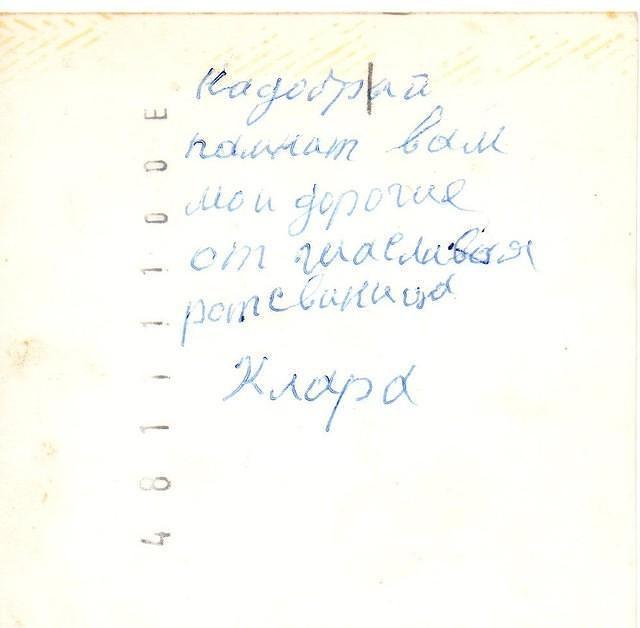 Надобрай
памнат вам
мои дорогие
от
ротсвиница
Клара
4811100E